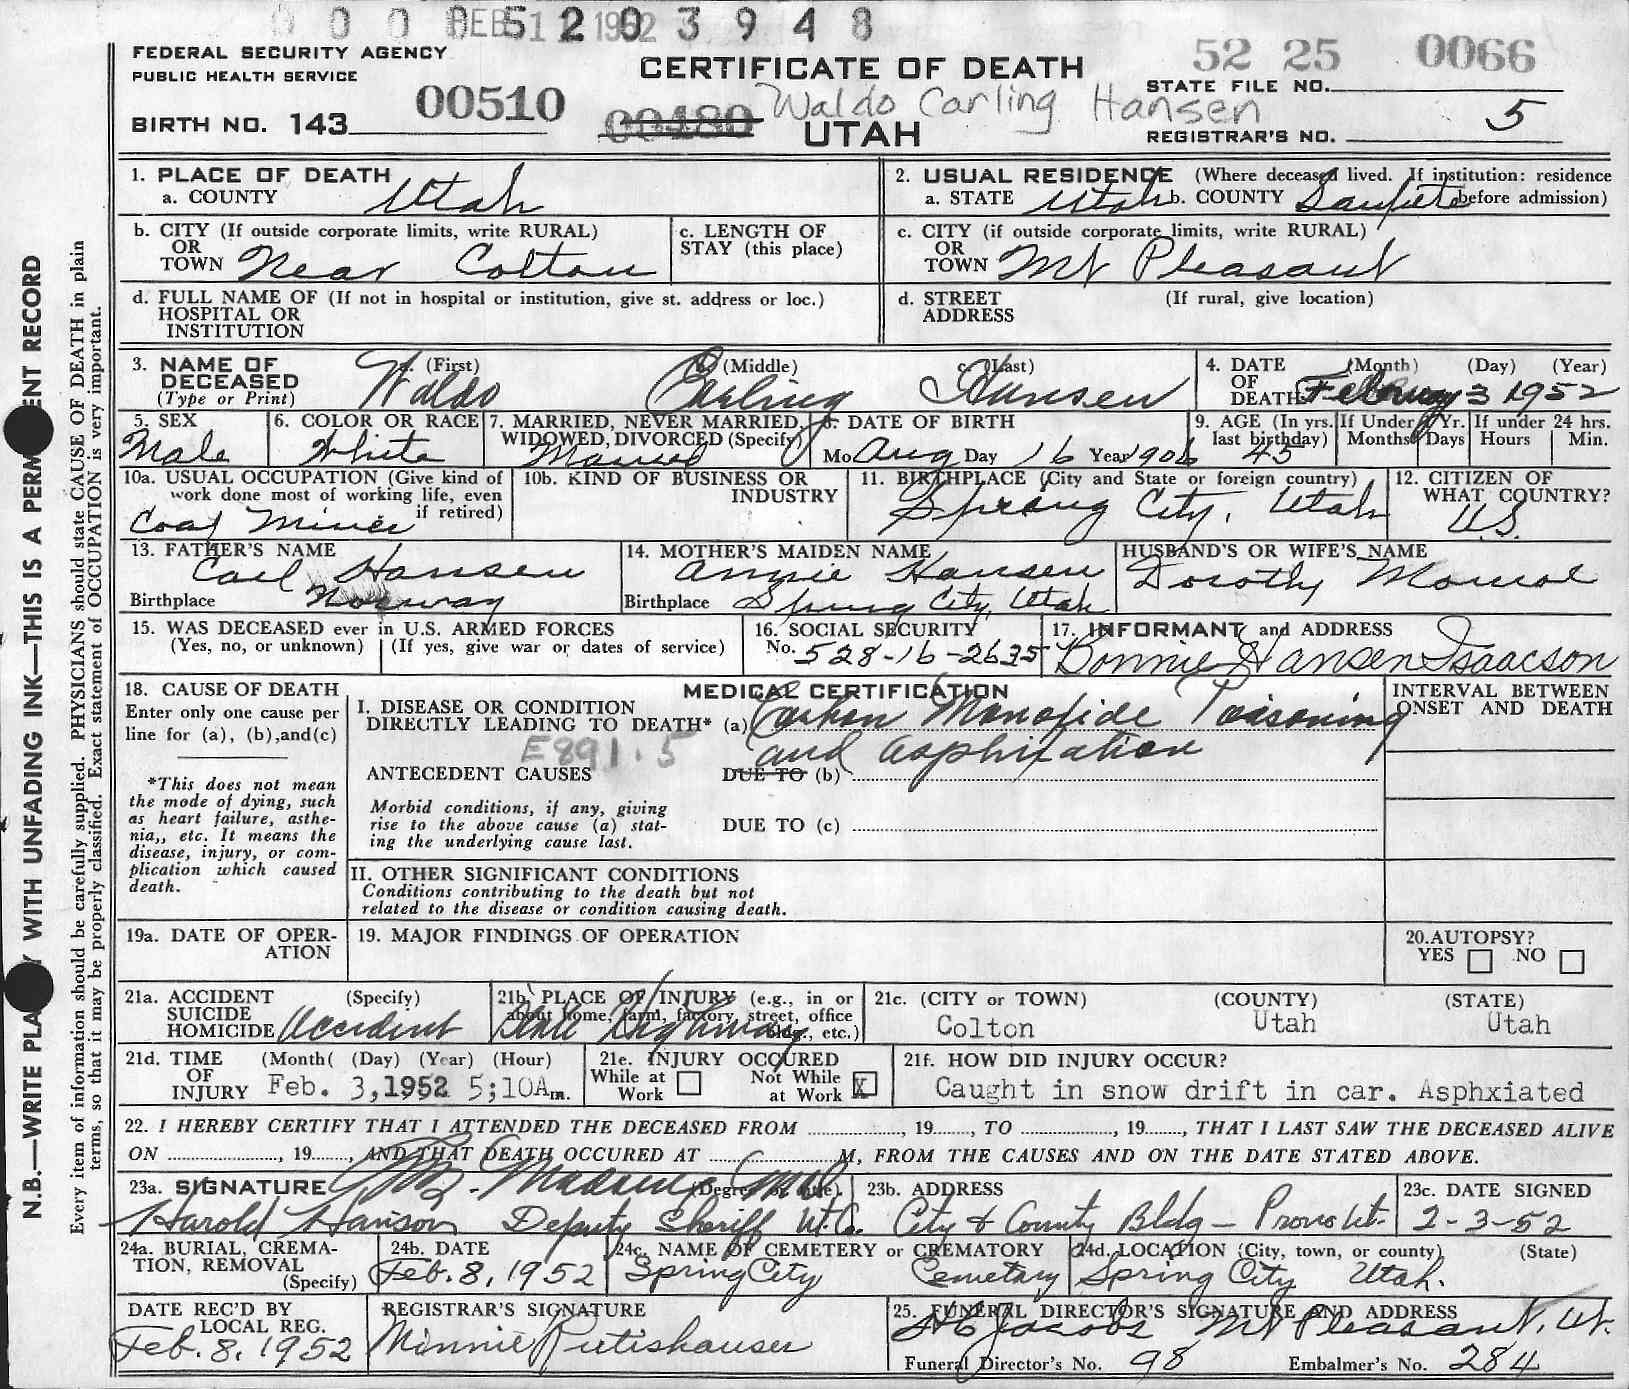 0 0 0 FEB 11 1952 5 2 0 3 9 4 8
FEDERAL SECURITY AGENCY
PUBLIC HEALTH SERVICE
CERTIFICATE OF DEATH
52 25 0066
STATE FILE NO.
BIRTH NO. 143 00510 00480 Waldo Carling Hansen
UTAH
REGISTRAR'S NO. 5
1. PLACE OF DEATH
a. COUNTY Utah
2. USUAL RESIDENCE (Where deceased lived. If institution: residence before admission)
a. STATE Utah b. COUNTY Sanpete
b. CITY (If outside corporate limits, write RURAL)
OR TOWN Near Colton
c. LENGTH OF STAY (this place)
c. CITY (if outside corporate limits, write RURAL)
OR TOWN Mt Pleasant
d. FULL NAME OF (If not in hospital or institution, give st. address or loc.)
HOSPITAL OR INSTITUTION
d. STREET ADDRESS (If rural, give location)
3. NAME OF DECEASED (Type or Print)
a. (First) Waldo b. (Middle) Carling c. (Last) Hansen
4. DATE OF DEATH (Month) (Day) (Year) February 3 1952
5. SEX Male
6. COLOR OR RACE White
7. MARRIED, NEVER MARRIED, WIDOWED, DIVORCED (Specify) Married
8. DATE OF BIRTH Mo Aug Day 16 Year 1906
9. AGE (In yrs. last birthday) 45
If Under 1 Yr. Months Days
If under 24 hrs. Hours Min.
10a. USUAL OCCUPATION (Give kind of work done most of working life, even if retired) Coal Miner
10b. KIND OF BUSINESS OR INDUSTRY
11. BIRTHPLACE (City and State or foreign country) Spring City, Utah
12. CITIZEN OF WHAT COUNTRY? U.S.
13. FATHER'S NAME Carl Hansen
Birthplace Norway
14. MOTHER'S MAIDEN NAME Annie Hansen
Birthplace Spring City, Utah
HUSBAND'S OR WIFE'S NAME Dorothy
15. WAS DECEASED ever in U.S. ARMED FORCES
(Yes, no, or unknown) (If yes, give war or dates of service)
16. SOCIAL SECURITY No. 528-16-2635
17. INFORMANT and ADDRESS Bonnie Hansen Isaacson
18. CAUSE OF DEATH
Enter only one cause per line for (a), (b), and (c)
*This does not mean the mode of dying, such as heart failure, asthenia,, etc. It means the disease, injury, or complication which caused death.
MEDICAL CERTIFICATION
I. DISEASE OR CONDITION DIRECTLY LEADING TO DEATH* (a) Carbon Monoxide Poisoning
and asphixation
E891.5
ANTECEDENT CAUSES
DUE TO (b)
Morbid conditions, if any, giving rise to the above cause (a) stating the underlying cause last.
DUE TO (c)
II. OTHER SIGNIFICANT CONDITIONS
Conditions contributing to the death but not related to the disease or condition causing death.
INTERVAL BETWEEN ONSET AND DEATH
19a. DATE OF OPERATION
19. MAJOR FINDINGS OF OPERATION
20. AUTOPSY?
YES NO
21a. ACCIDENT SUICIDE HOMICIDE (Specify) Accident
21b. PLACE OF INJURY (e.g., in or about home, farm, factory, street, office bldg., etc.) State Highway
21c. (CITY or TOWN) (COUNTY) (STATE)
Colton Utah Utah
21d. TIME OF INJURY (Month) (Day) (Year) (Hour) Feb. 3, 1952 5;10A m.
21e. INJURY OCCURED
While at Work Not While at Work X
21f. HOW DID INJURY OCCUR?
Caught in snow drift in car. Asphxiated
22. I HEREBY CERTIFY THAT I ATTENDED THE DECEASED FROM ............, 19......, TO ............, 19......, THAT I LAST SAW THE DECEASED ALIVE
ON ............, 19......, AND THAT DEATH OCCURED AT ............M, FROM THE CAUSES AND ON THE DATE STATED ABOVE.
23a. SIGNATURE (Degree or title)
Harold Hanson Deputy Sheriff Ut. Co.
23b. ADDRESS City & County Bldg - Provo Ut.
23c. DATE SIGNED 2-3-52
24a. BURIAL, CREMATION, REMOVAL (Specify)
24b. DATE Feb. 8, 1952
24c. NAME OF CEMETERY or CREMATORY Spring City Cemetary
24d. LOCATION (City, town, or county) (State) Spring City Utah.
DATE REC'D BY LOCAL REG. Feb. 8, 1952
REGISTRAR'S SIGNATURE Minnie Rutishauser
25. FUNERAL DIRECTOR'S SIGNATURE AND ADDRESS
Jacobs Mt Pleasant, Ut.
Funeral Director's No. 98 Embalmer's No. 284
N.B.—WRITE PLA Y WITH UNFADING INK—THIS IS A PERM ENT RECORD
Every item of information should be carefully supplied. PHYSICIANS should state CAUSE OF DEATH in plain
terms, so that it may be properly classified. Exact statement of OCCUPATION is very important.